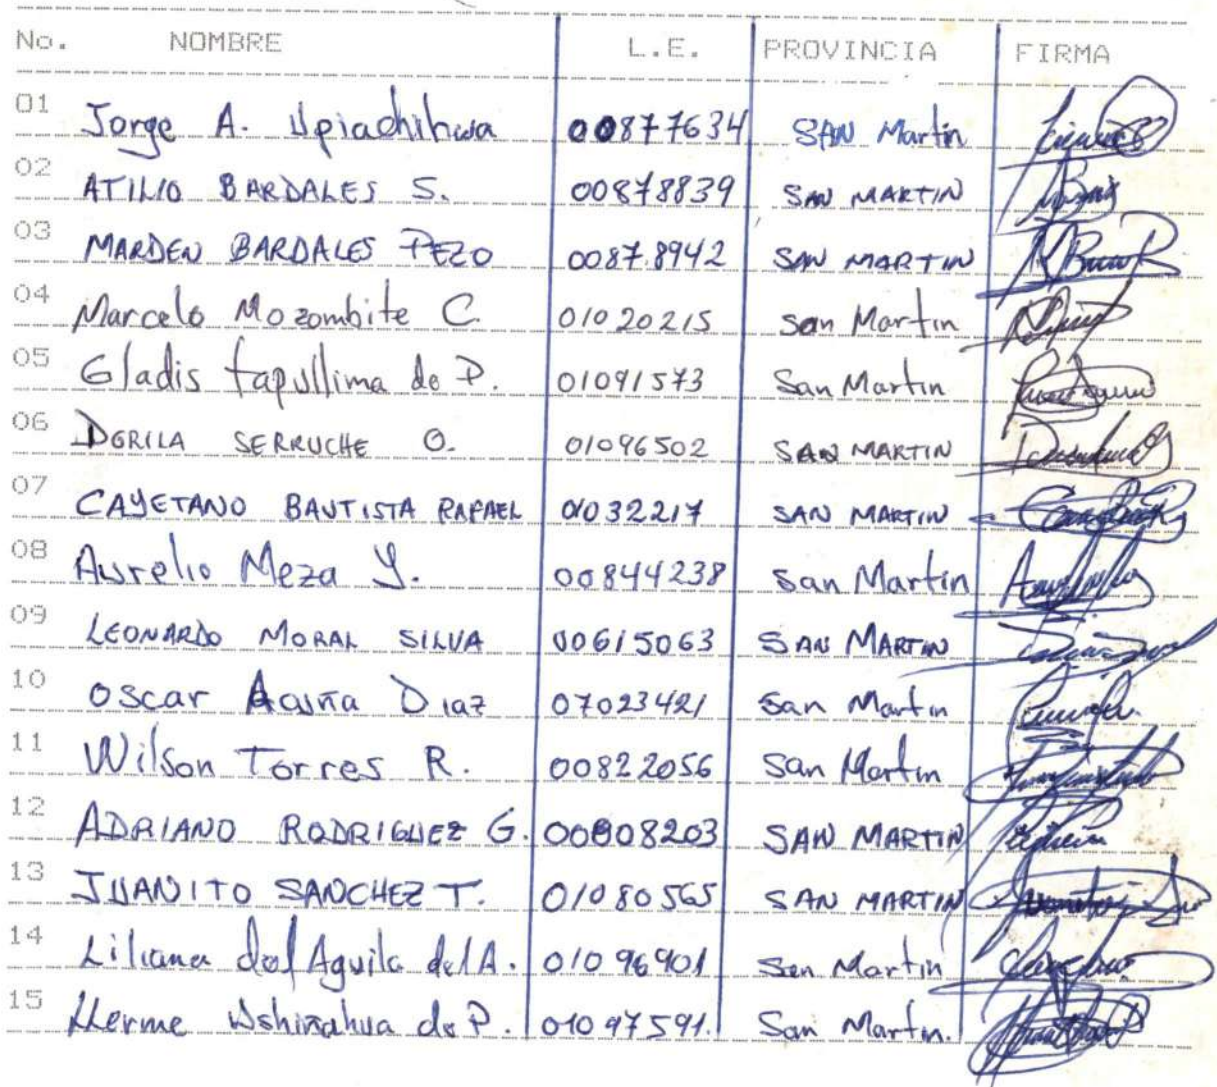 No. NOMBRE L.E. PROVINCIA FIRMA
01 Jorge A. Upiachihua 00877634 SAN Martin
02 ATILIO BARDALES S. 00878839 SAN MARTIN
03 MARDEN BARDALES PEZO 0087.8942 SAN MARTIN
04 Marcelo Mozombite C. 01020215 San Martin
05 Gladis tapullima de P. 01091573 San Martin
06 DGRILA SERRUCHE O. 01096502 SAN MARTIN
07 CAYETANO BAUTISTA RAFAEL 01032217 SAN MARTIN
08 Aurelio Meza Y. 00844238 San Martin
09 LEONARDO MORAL SILVA 00615063 SAN MARTIN
10 Oscar Acuña Diaz 07023421 San Martin
11 Wilson Torres R. 00822056 San Martin
12 ADRIANO RODRIGUEZ G. 00808203 SAN MARTIN
13 JUANITO SANCHEZ T. 01080565 SAN MARTIN
14 Liliana del Aguila del A. 01096901 San Martin
15 Herme Ushiñahua de P. 01097591. San Martin.